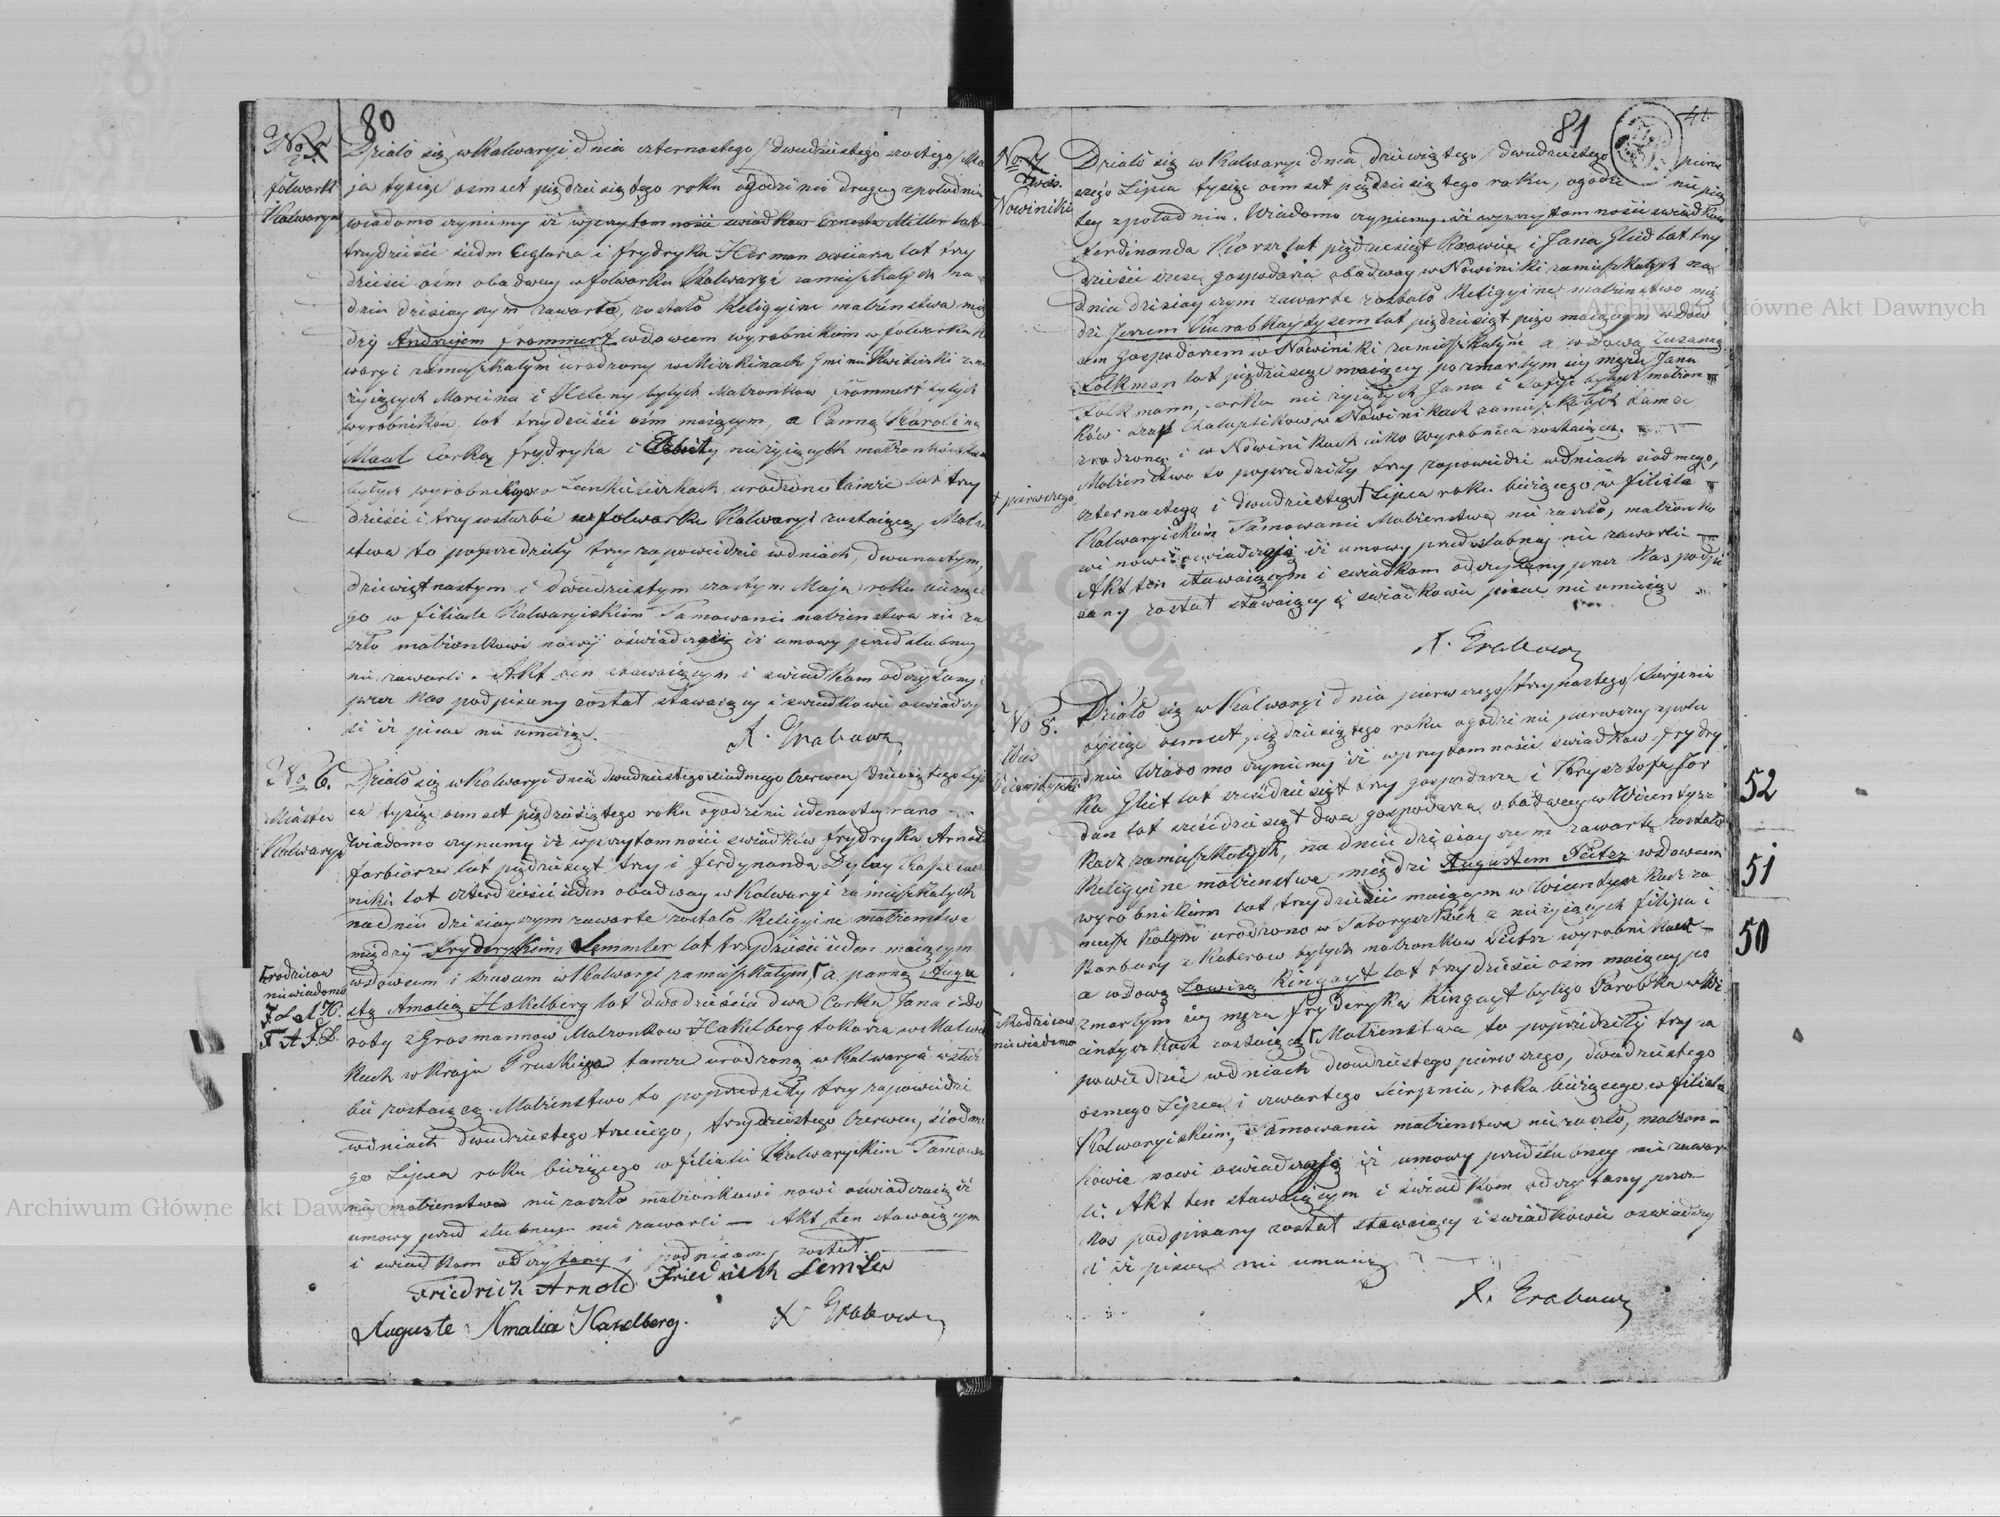 80
No 5.
folwark
Kalwarya
Działo się w Kalwaryi dnia czternastego / dwudziestego szóstego / Ma
ja tysiąc osmset pięćdziesiątego roku o godzinie drugiey z południa
wiadomo czyniemy iż w przytomności swiadków Ernesta Miller lat
trzydzieści siedm Ceglarza i Frydryka Herman owczarza lat trzy
dzieści óśm obadway w folwarku Kalwaryi zamieszkałych na
dniu dzisieyszym zawarte, zostało Religijne małżeństwo mię
dzy Andrzejem Frommert wdowcem wyrobnikiem w folwarku K
waryi zamieszkałym urodzony w Miszkinach Gminie Kwietiszki z nie
żyjących Marcina i Heleny byłych Małżonków Frommert byłych
wyrobników, lat trzydzieści óśm maiącym, a Panną Karoliną
Maul Corką Frydryka i Elżbiety nieżyiących małżonków
byłych wyrobników o Lankieliszkach urodzone tamże lat trzy
dzieści i trzy w służbie w folwarku Kalwaryi zostaiącą, Małże
stwo to poprzedziły trzy zapowiedzie w dniach, dwunastym,
dziewiętnastym i dwudziestym szóstym Maja roku bieżące
go w filiale Kalwaryiskim Tamowanie małżeństwa nie za
szło małżonkowie nowi oświadczaią iż umowy przedślubney
nie zawarli. Akt ten stawaiącym i świadkom odczytany i
przez Nas podpisany został stawaiący i swiadkowie oswiadczy
li iż pisac nie umieią.
X. Grabowz
No 6.
Miasto
Kalwarya
Działo się w Kalwaryi dnia dwudziestego siódmego Czerwca / dziewiątego Lip
ca tysiąc osmset pięćdziesiątego roku o godzinie iedenastey rano
Wiadomo czyniemy iż w przytomności swiadków Frydryka Arnold
farbiarza lat pięćdziesiąt trzy i Ferdynanda Dylay
nika lat czterdzieści ieden obadway w Kalwaryi zamieszkałych
na dniu dzisieyszym zawarte zostało Religijne małżeństwo
między Fryderykiem Lemmler lat trzydzieści ieden maiącym
wdowcem i szewcem w Kalwaryi zamieszkałym, a panną Augu
stą Amalią Hakelberg lat dwadzieścia dwa Corką Jana i Do
roty z Grosmannow Małżonkow Hakelberg tokarza
kach w Kraju Pruskim tamże urodzoną w Kalwaryi w służ
bie zostaiącą. Małżenstwo to poprzedziły trzy zapowiedzi
w dniach dwudziestego trzeciego, trzydziestego Czerwca, siódme
go Lipca roku bieżącego w filiale Kalwaryskim Tamowa
nie małżenstwa nie zaszło małżonkowie nowi oświadczaią iż
umowy przed slubney nie zawarli — Akt ten stawaiącym
i swiadkom odczytany i podpisany został.
rodzicow
niewiadomo
Friedrich Arnold Friedrich Lemler
Auguste Amalia Hakelberg.
X. Grabowz
81
41
No 7
Wies.
Nowiniki
Działo się w Kalwaryi dnia dziewiątego / dwudziestego pierw
szego Lipca tysiąc osmset pięćdziesiątego roku, o godzinie pią
tey z południa. Wiadomo czyniemy iż w przytomności swiadków
Ferdinanda Korsz lat pięćdziesiąt Krawca i Jana Glied lat trzy
dzieści sześc gospodarza obadway w Nowiniki zamieszkałych na
dniu dzisiayszym zawarte zostało Religijne małżenstwo mię
dzy Jerzem Kurabkaytysem lat pięćdziesiąt pięc maiącym wdow
cem Gospodarzem w Nowiniki zamieszkałym a wdową Zuzanną
Folkman lat pięćdziesiąt maiącą po zmarłym iey mężu Jana
Folkmann, corką nie żyiących Jana i Zofiji byłych małżon
ków Chałupników w Nowinikach zamieszkałych tamże
zrodzoną i w Nowinikach iako Wyrobnica zostaiąca.
Małżeństwo to poprzedziły trzy zapowiedzi w dniach siódmego,
czternastego i dwudziestego † Lipca roku bieżącego w filiale
Kalwaryiskim Tamowanie Małżenstwa nie zaszło, małżonko
wie nowi oswiadczaią iż umowy przedslubney nie zawarli
Akt ten stawaiącym i swiadkom odczytany przez Nas podpi
sany został stawaiący i swiadkowie pisac nie umieią
† pierwszego
X. Grabowz
No 8.
Wies
Działo się w Kalwaryi dnia pierwszego / trzynastego / Sierpnia
tysiąc osmset pięćdziesiątego roku o godzinie pierwszey z połu
dnia Wiadomo czyniemy iż w przytomności swiadków Frydry
ka Gliet lat sześdziesiąt trzy gospodarza i Krysztofa Jor
dan lat sześdziesiąt dwa gospodarza obadway w Wicentysz
kach zamieszkałych, na dniu dzisiayszym zawarte zostało
Religyine małżenstwo między Augustem Peitsz wdowcem
wyrobnikiem lat trzydzieści maiącym w Wicentyszkach za
mieszkałym urodzono w Taboryszkach z nieżyiących Filipa i
Barbary z Katerow byłych małżonkow Peitsz wyrobnikow
a wdową Lowizą Kingayt lat trzydzieści osm maiącą po
zmarłym iey mężu Fryderyka Kingayt byłego Parobka w Wi
centyszkach zostaiącą Małżenstwo to poprzedziły trzy za
powiedzie w dniach dwudziestego pierwszego, dwudziestego
osmego Lipca i czwartego Sierpnia, roku bieżącego w filiale
Kalwaryiskim, Tamowanie małżenstwa nie zaszło, małżon-
kowie nowi oswiadczaią iż umowy przedslubney nie zawar
li. Akt ten stawaiącym i swiadkom odczytany przez
Nas podpisany został stawaiący i swiadkowie oswiadczy
li iż pisac nie umieią
Rodzicow
niewiadomo
X. Grabowz
52
51
50
Archiwum Główne Akt Dawnych
Archiwum Główne Akt Dawnych